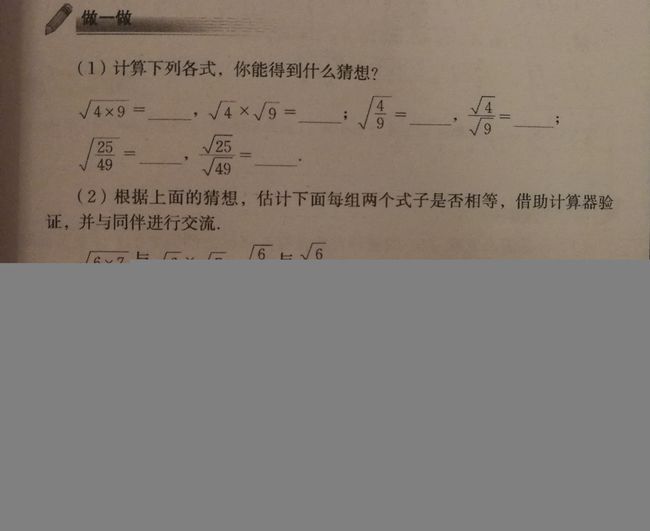 做一做
(1) 计算下列各式，你能得到什么猜想？
√(4×9) = ____，√4 × √9 = ____；√(4/9) = ____，√4/√9 = ____；
√(25/49) = ____，√25/√49 = ____.
(2) 根据上面的猜想，估计下面每组两个式子是否相等，借助计算器验
证，并与同伴进行交流.
√(6×7) 与